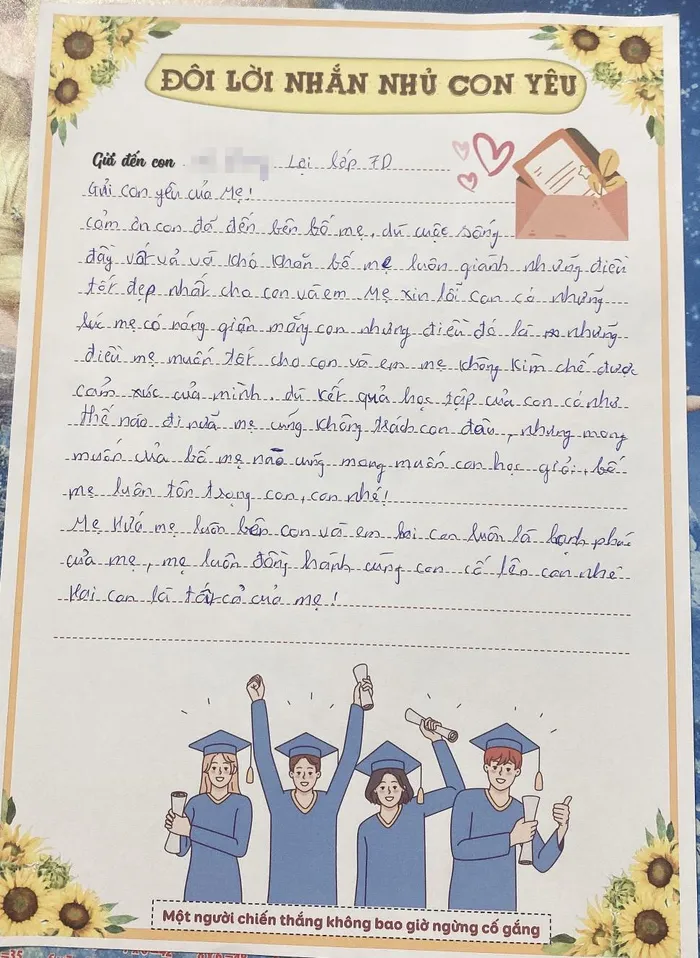 ĐÔI LỜI NHẮN NHỦ CON YÊU
Gửi đến con Lại lớp 7D
Gửi con yêu của Mẹ!
cảm ơn con đã đến bên bố mẹ, dù cuộc sống
đầy vất vả và khó khăn bố mẹ luôn giành những điều
tốt đẹp nhất cho con và em Mẹ xin lỗi con có những
lúc mẹ có nóng giận mắng con nhưng điều đó là những
điều mẹ muốn tốt cho con và em mẹ không kìm chế được
cảm xúc của mình. dù kết quả học tập của con có như
thế nào đi nữa mẹ cũng không trách con đâu, nhưng mong
muốn của bố mẹ nào cũng mong muốn con học giỏi, bố
mẹ luôn tôn trọng con, con nhé!
Mẹ Hứa mẹ luôn bên con và em hai con luôn là hạnh phúc
của mẹ, mẹ luôn đồng hành cùng con cố lên con nhé
Hai con là tất cả của mẹ!
Một người chiến thắng không bao giờ ngừng cố gắng